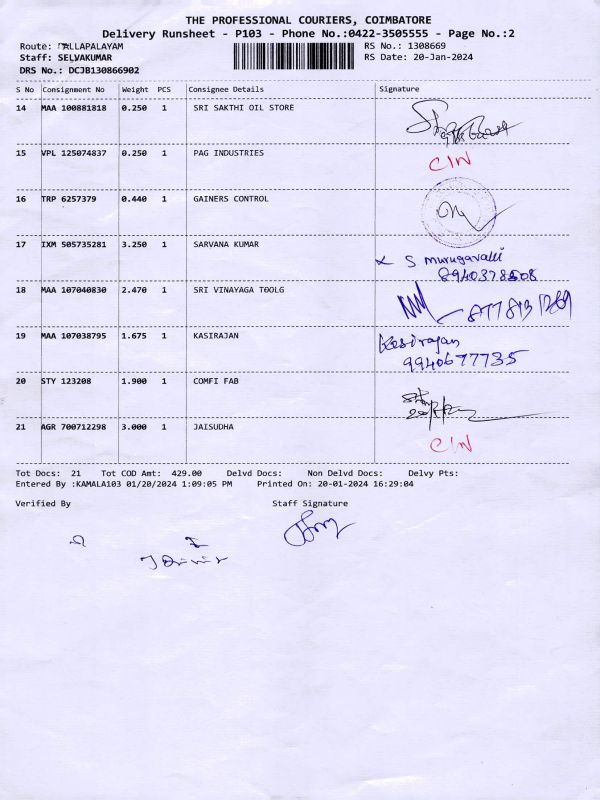 THE PROFESSIONAL COURIERS, COIMBATORE
Delivery Runsheet - P103 - Phone No.:0422-3505555 - Page No.:2
Route: TALLAPALAYAM RS No.: 1308669
Staff: SELVAKUMAR RS Date: 20-Jan-2024
DRS No.: DCJB130866902
S No Consignment No Weight PCS Consignee Details Signature
14 MAA 100881818 0.250 1 SRI SAKTHI OIL STORE
15 VPL 125074837 0.250 1 PAG INDUSTRIES C/N
16 TRP 6257379 0.440 1 GAINERS CONTROL
17 IXM 505735281 3.250 1 SARVANA KUMAR S murugavalli
8940378508
18 MAA 107040830 2.470 1 SRI VINAYAGA TOOLG
19 MAA 107038795 1.675 1 KASIRAJAN Kasirajan
9940677735
20 STY 123208 1.900 1 COMFI FAB
21 AGR 700712298 3.000 1 JAISUDHA C/N
Tot Docs: 21 Tot COD Amt: 429.00 Delvd Docs: Non Delvd Docs: Delvy Pts:
Entered By :KAMALA103 01/20/2024 1:09:05 PM Printed On: 20-01-2024 16:29:04
Verified By Staff Signature